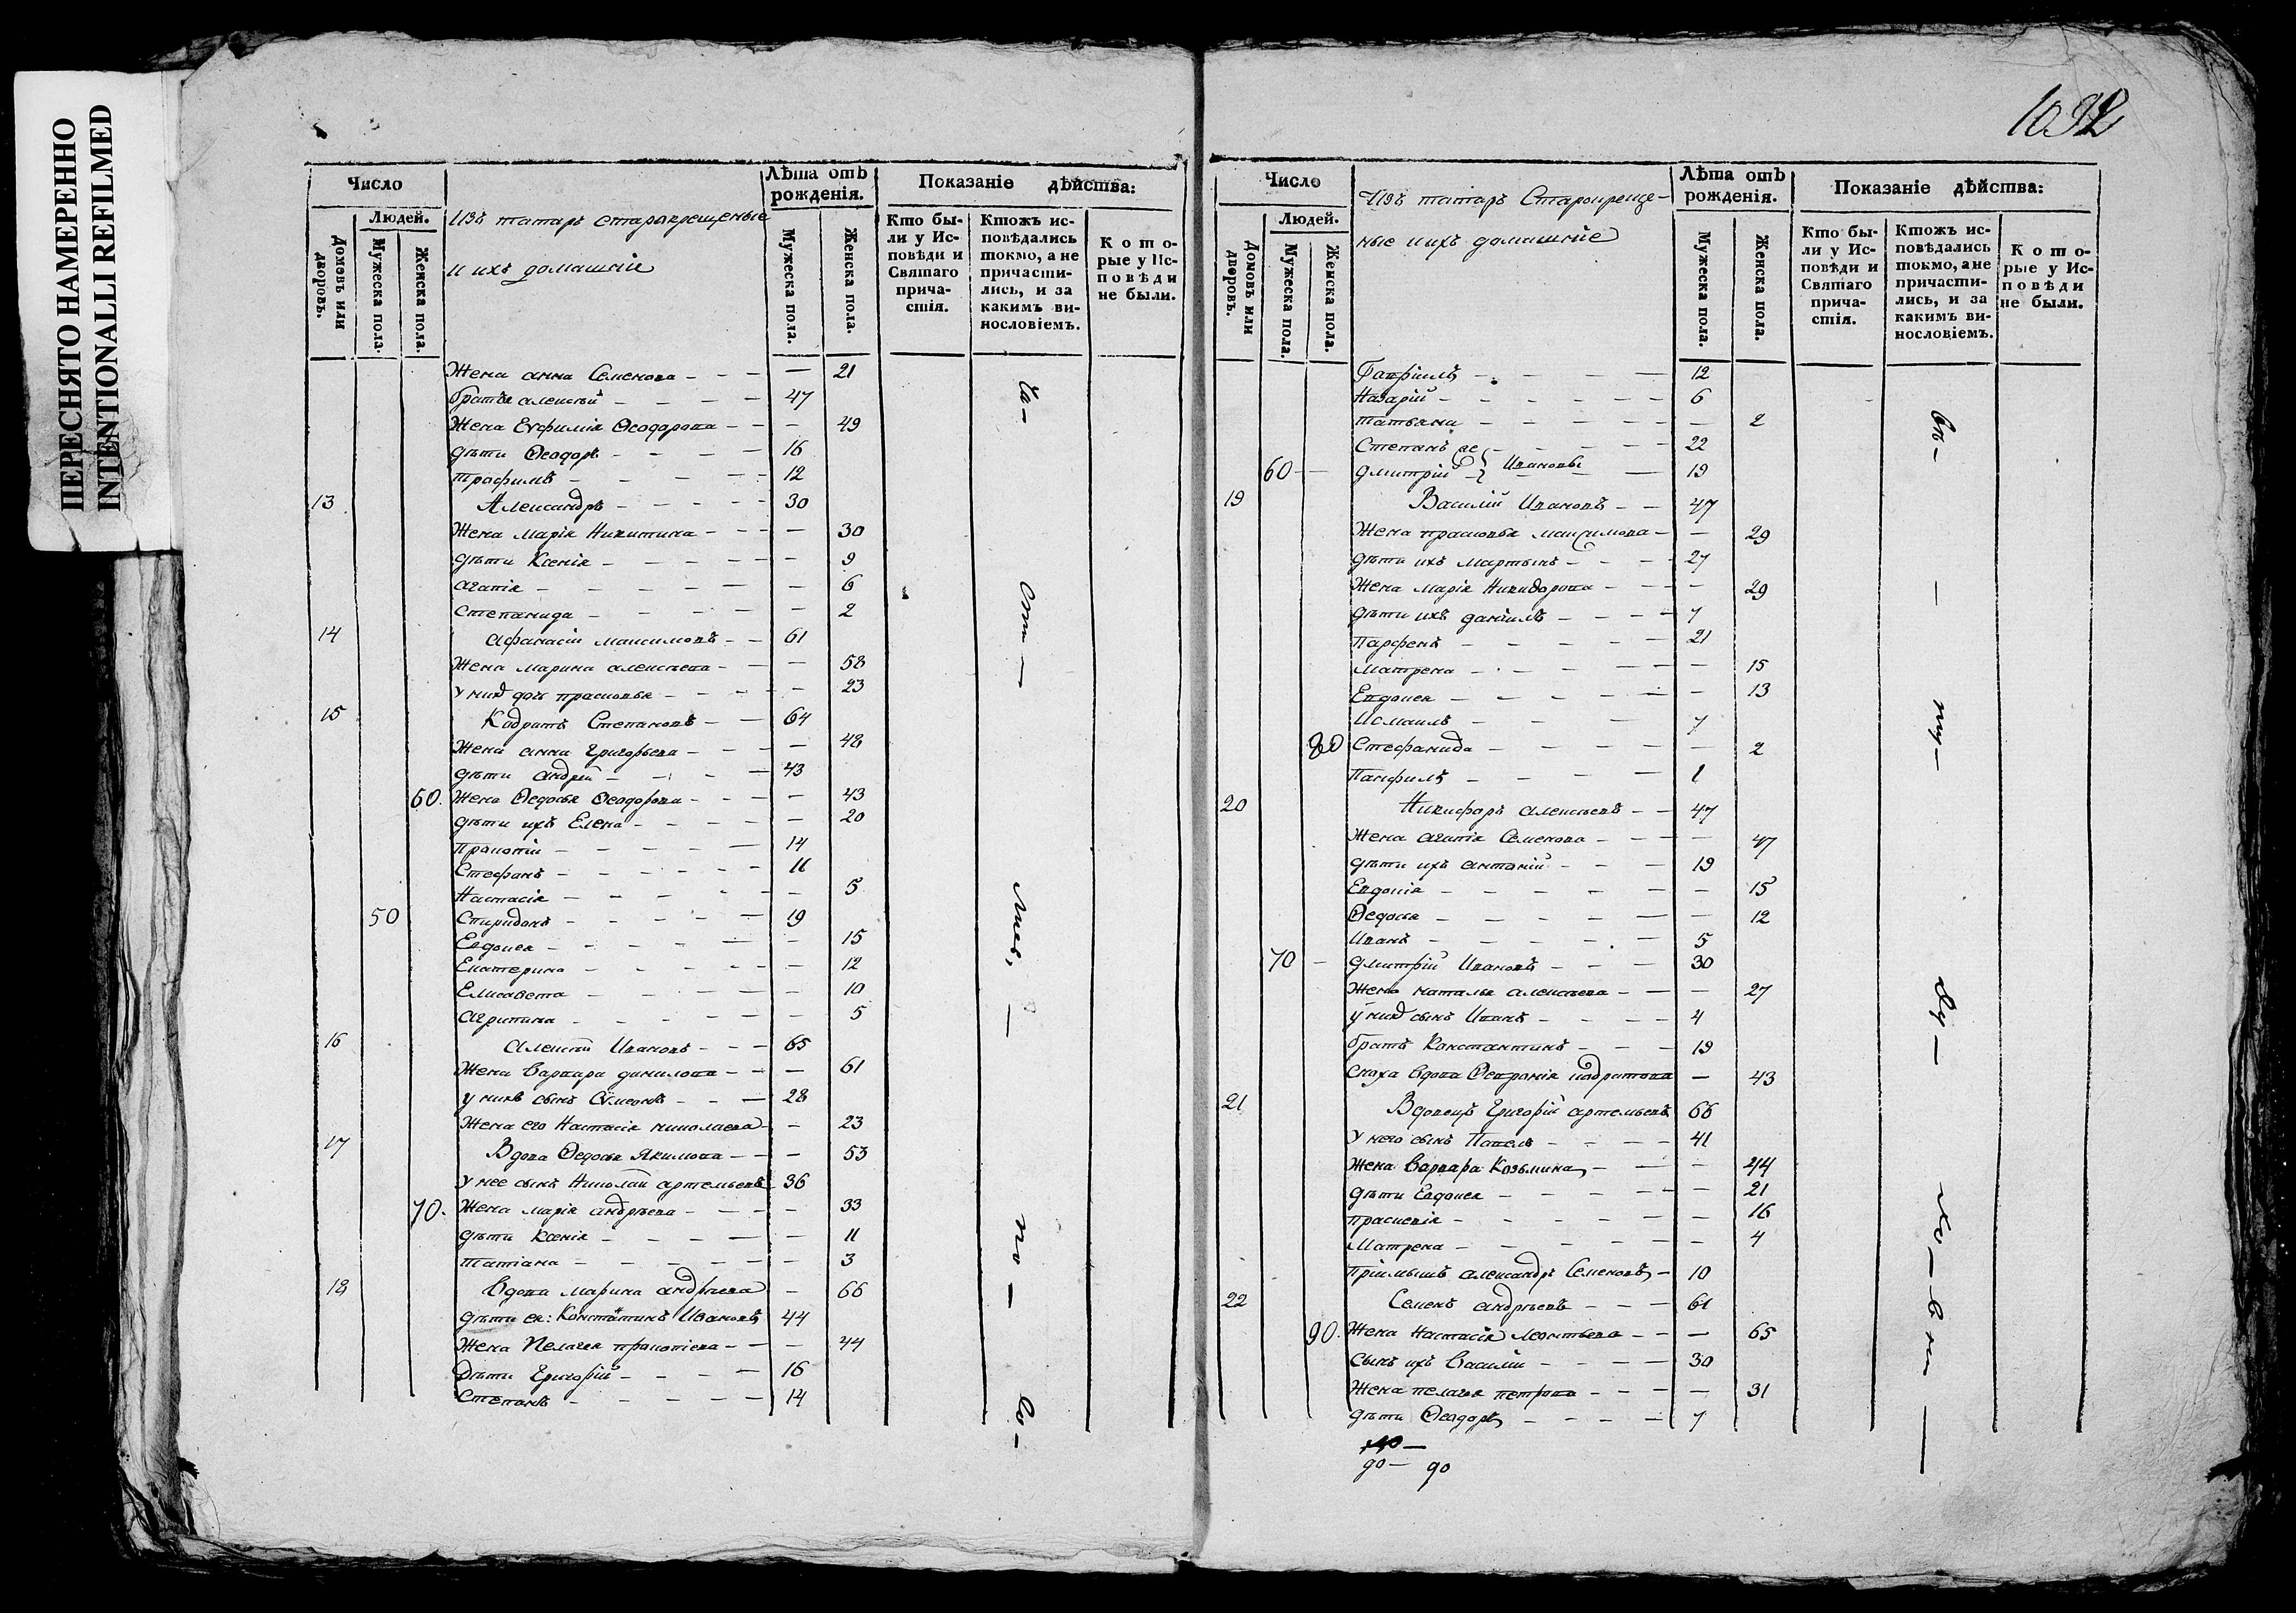 ПЕРЕСНЯТО НАМЕРЕННО
INTENTIONALLI REFILMED
Число
Людей.
Домовъ или дворовъ.
Мужеска пола.
Женска пола.
Изъ татаръ старокрещеные
и ихъ домашніе
Лѣта отъ рожденія.
Мужеска пола.
Женска пола.
Показаніе дѣйства:
Кто были у Исповѣди и Святаго причастія.
Ктожъ исповѣдались токмо, а не причастились, и за какимъ винословіемъ.
Которые у Исповѣди не были.
Жена анна Семенова - - - — 21
братъ алексѣй - - - 47
Жена Евфимія Ѳеодорова - - - 49
дѣти Ѳеодоръ - - - 16
трофимъ - - - 12
13 Александръ - - - 30
Жена марія Никитина - - - 30
дѣти Ксенія - - - 9
агапія - - - 6
степанида - - - 2
14 афанасій максимовъ - - 61
Жена марина алексѣева - - - 58
у них дочь прасковья - - - 23
15 Кодратъ Степановъ - - 64
Жена анна григорьева - - - 48
дѣти андрей - - - 43
60. Жена Ѳедосья Ѳеодорова - - - 43
дѣти ихъ Елена - - - 20
прокопій - - - 14
Стефанъ - - - 11
Настасія - - - 5
50 Спиридонъ - - - 19
Евдокея - - - 15
Екатерина - - - 12
Елисавета - - - 10
агрипина - - - 5
16 алексѣй Ивановъ - - - 65
Жена варвара данилова - - - 61
у нихъ сынъ Сѵмеонъ - - - 28
Жена его Настасія николаева - 23
17 Вдова Ѳедосья Якимова - - - 53
у нее сынъ Николай артемьевъ 36
70. Жена марія андрѣева - - - 33
дѣти Ксенія - - - 11
татіана - - - 3
18 Вдова марина андрѣева - 66
дѣти ея: Константинъ Ивановъ 44
Жена Пелагея прокопіева - - - 44
Дѣти Григорій - - - 16
Степанъ - - - 14
ча-
сти —
лись, —
по —
во —
1092
Число
Людей.
Домовъ или дворовъ.
Мужеска пола.
Женска пола.
Изъ татаръ Старокреще-
ные и ихъ домашніе
Лѣта отъ рожденія.
Мужеска пола.
Женска пола.
Показаніе дѣйства:
Кто были у Исповѣди и Святаго причастія.
Ктожъ исповѣдались токмо, а не причастились, и за какимъ винословіемъ.
Которые у Исповѣди не были.
Гавріилъ - - - 12
Назарій - - - 6
татьяна - - - 2
Степанъ - - - 22
60 — дмитрій } Ивановы — 19
19 Василій Ивановъ - - 47
Жена прасковья максимова - — 29
дѣти ихъ мартынъ - - - 27
Жена марія Никифорова - - - 29
дѣти ихъ даніилъ - - - 7
Парфенъ - - - 21
матрена - - - 15
Евдокея - - - 13
Исмаилъ - - - 7
80 Стефанида - - - 2
Панфилъ - - - 1
20 Никифоръ алексѣевъ - - 47
Жена агапія Семенова - - - 47
дѣти ихъ антоній - - - 19
Евдокія - - - 15
Ѳедосья - - - 12
Иванъ - - - 5
70 - дмитрій Ивановъ - - - 30
Жена наталья алексѣева - - - 27
у них сынъ Иванъ - - - 4
братъ Константинъ - - - 19
сноха вдова Ѳевронія кодратова — 43
21 Вдовецъ Григорій артемьевъ 66
У него сынъ Павелъ - - - 41
Жена варвара Козьмина - - - 44
дѣти Евдокея - - - 21
прасковія - - - 16
Матрена - - - 4
Пріимышъ александръ Семеновъ - 10
22 Семенъ андрѣевъ - - - 61
90. Жена настасія леонтьева - - — 65
сынъ ихъ Василій - - - 30
Жена пелагея петрова - - - 31
дѣти Ѳеодоръ - - - 7
90 — 90
въ-
—
ту-
ду —
хо — в н —